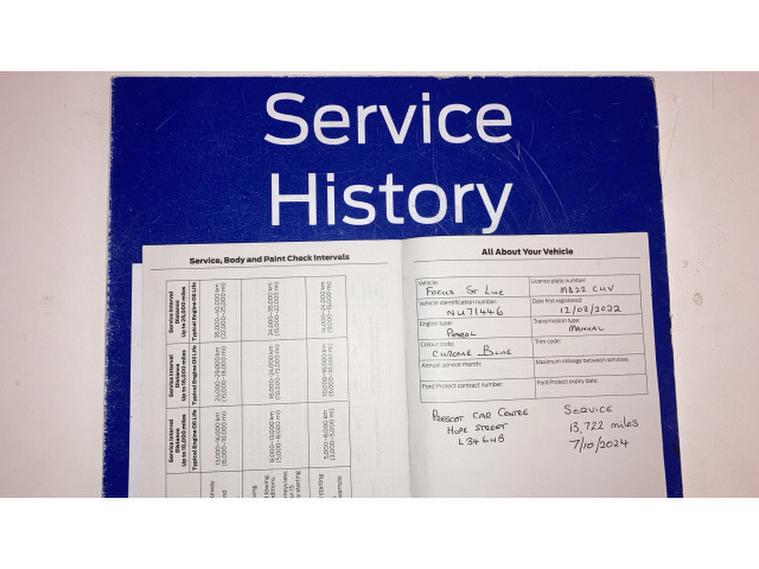 Service
History
Service, Body and Paint Check Intervals
Service Interval
Distance
Up to 25,000 miles
Typical Engine Oil Life
35,000–40,000 km
(22,000–25,000 mi)
24,000–35,000 km
(15,000–22,000 mi)
14,000–24,000 km
(9,000–15,000 mi)
Service Interval
Distance
Up to 18,000 miles
Typical Engine Oil Life
24,000–29,000 km
(15,000–18,000 mi)
16,000–24,000 km
(10,000–15,000 mi)
10,000–16,000 km
(6,000–10,000 mi)
Service Interval
Distance
Up to 10,000 miles
Typical Engine Oil Life
13,000–16,000 km
(8,000–10,000 mi)
8,000–13,000 km
(5,000–8,000 mi)
5,000–8,000 km
(3,000–5,000 mi)
All About Your Vehicle
Vehicle: Focus St Line
Licence plate number: MD22 CUV
Vehicle identification number: NU71446
Date first registered: 12/08/2022
Engine type: Petrol
Transmission type: Manual
Colour code: Chrome Blue
Trim code:
Annual service month:
Maximum mileage between services:
Ford Protect contract number:
Ford Protect expiry date:
Prescot Car Centre
Hope Street
L34 6HB
Service
13,722 miles
7/10/2024